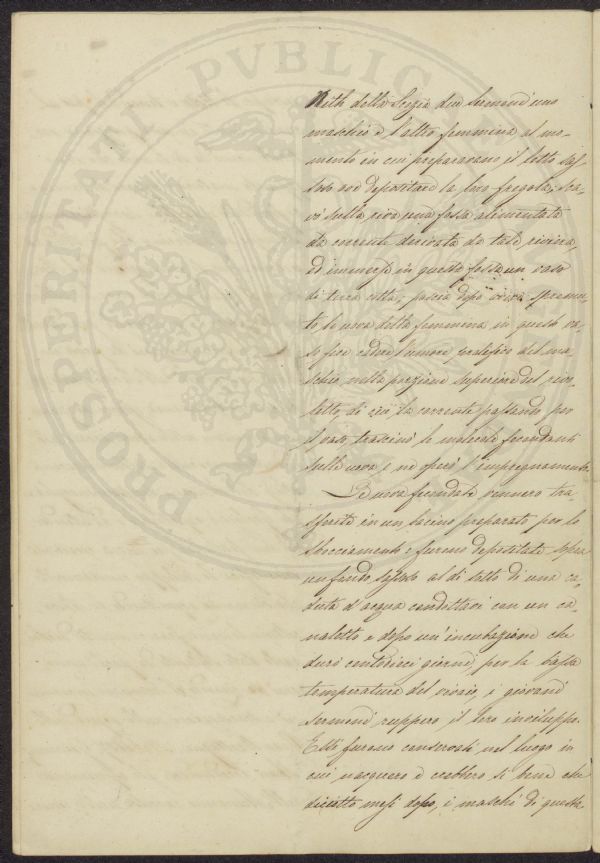 PROSPERITATI PVBLICAE
Nith della Scozia due sermoni uno
maschio e l'altro femmina al mo-
mento in cui preparavano il letto sas-
soso ove depositare la loro fregola, sca-
vò sulla riva una fossa alimentata
da corrente derivata da tale riviera,
ed immerse in questa fossa un vaso
di terra cotta, poscia dopo aver spremu-
to le uova della femmina in questo va-
so fece cadere l'umore prolifico del ma-
schio, nella porzione superiore del rivo-
letto, di cui la corrente passando per
il vaso trascinò le molecole fecondanti
sulle uova e ne operò l'impregnamento.
Le uova fecondate vennero tra-
sferite in un bacino preparato per lo
sbocciamento e furono depositate sopra
un fondo sassoso al di sotto di una ca-
duta d'acqua condottavi con un ca-
naletto e dopo un'incubazione che
durò centotredici giorni, per la bassa
temperatura del vivaio, i giovani
sermoni ruppero il loro inviluppo.
Essi furono conservati nel luogo in
cui nacquero e crebbero sì bene che
diciotto mesi dopo, i maschi di queste